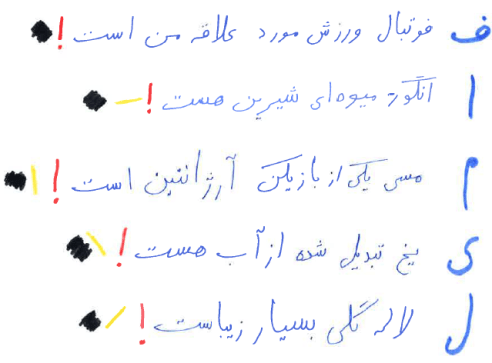 ف فوتبال ورزش مورد علاقه من است!
ا انگور میوه‌ای شیرین هست!
م مسی یکی از بازیکن آرژانتین است!
ی یخ تبدیل شده از آب هست!
ل لاله گلی بسیار زیباست!